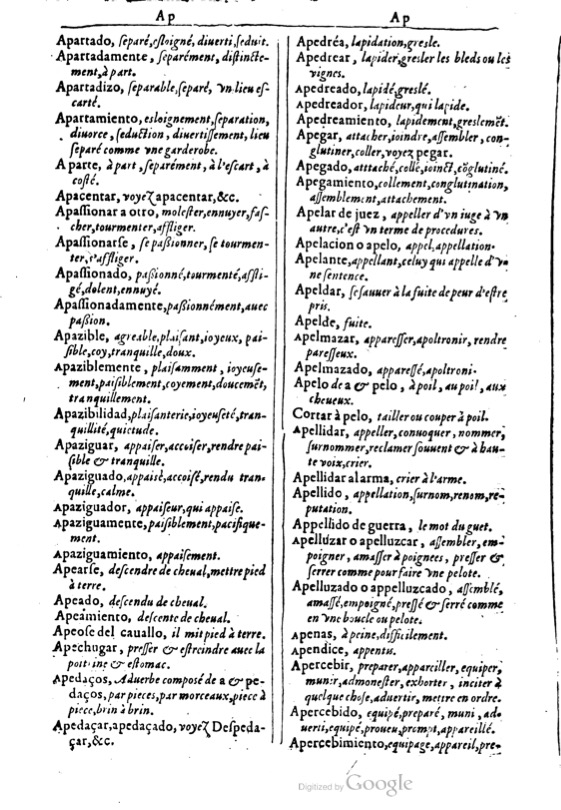 Ap
Apartado, ſeparé,eſloigné, diuerti,ſeduit.
Apartadamente, ſeparément, diſtincte-
ment,à part.
Apartadizo, ſeparable,ſeparé, vn lieu eſ-
carté.
Apartamiento, esloignement,ſeparation,
diuorce, ſeduction, diuertiſſement, lieu
ſeparé comme vne garderobe.
A parte, à part, ſeparément, à l'eſcart, à
coſté.
Apacentar, voyez apacentar,&c.
Apaſſionar a otro, moleſter,ennuyer,faſ-
cher,tourmenter,affliger.
Apaſſionarſe, ſe paßionner, ſe tourmen-
ter,s'affliger.
Apaſſionado, paßionné,tourmenté,affli-
gé,dolent,ennuyé.
Apaſſionadamente,paßionnément,auec
paßion.
Apazible, agreable,plaiſant, ioyeux, pai-
ſible,coy,tranquille,doux.
Apaziblemente, plaiſamment, ioyeuſe-
ment,paiſiblement,coyement,doucemẽt,
tranquillement.
Apazibilidad,plaiſanterie,ioyeuſeté,tran-
quillité,quietude.
Apaziguar, appaiſer,accoiſer,rendre pai-
ſible & tranquille.
Apaziguado,appaisé,accoisé,rendu tran-
quille,calme.
Apaziguador, appaiſeur,qui appaiſe.
Apaziguamente,paiſiblement,pacifique-
ment.
Apaziguamiento, appaiſement.
Apearſe, deſcendre de cheual,mettre pied
à terre.
Apeado, deſcendu de cheual.
Apeamiento, deſcente de cheual.
Apeoſe del cauallo, il mit pied à terre.
Apechugar, preſſer & eſtreindre auec la
poitrine & eſtomac.
Apedaços, Aduerbe composé de a & pe-
daços,par pieces,par morceaux,piece à
piece,brin à brin.
Apedaçar,apedaçado, voyez Deſpeda-
çar,&c.
Ap
Apedréa, lapidation,greſle.
Apedrear, lapider,greſler les bleds ou les
vignes.
Apedreado, lapidé,greslé.
Apedreador, lapideur,qui lapide.
Apedreamiento, lapidement,greslemẽt.
Apegar, attacher,ioindre,aſſembler, con-
glutiner,coller,voyez pegar.
Apegado, atttaché,collé,ioinct,cõglutiné.
Apegamiento,collement,conglutination,
aſſemblement,attachement.
Apelar de juez, appeller d'vn iuge à vn
autre,c'eſt vn terme de procedures.
Apelacion o apelo, appel,appellation.
Apelante,appellant,celuy qui appelle d'v-
ne ſentence.
Apeldar, ſe ſauuer à la fuite de peur d'eſtre
pris.
Apelde, fuite.
Apelmazar, appareſſer,apoltronir, rendre
pareſſeux.
Apelmazado, appareßé,apoltroni.
Apelo de a & pelo, à poil, au poil, aux
cheueux.
Cortar à pelo, tailler ou couper à poil.
Apellidar, appeller, conuoquer, nommer,
ſurnommer,reclamer ſouuent & à hau-
te voix,crier.
Apellidar al arma, crier à l'arme.
Apellido, appellation,ſurnom,renom,re-
putation.
Appellido de guerra, le mot du guet.
Apelluzar o apelluzcar, aſſembler, em-
poigner, amaſſer à poignees, preſſer &
ſerrer comme pour faire vne pelote.
Apelluzado o appelluzcado, aſſemblé,
amaßé,empoigné,preßé & ſerré comme
en vne boucle ou pelote.
Apenas, à peine,difficilement.
Apendice, appentis.
Apercebir, preparer,appareiller, equiper,
munir,admoneſter, exhorter, inciter à
quelque choſe,aduertir, mettre en ordre.
Apercebido, equipé,preparé, muni, ad-
uerti,equipé,proueu,prompt,appareillé.
Apercebimiento,equipage,appareil,pre-
Digitized by Google